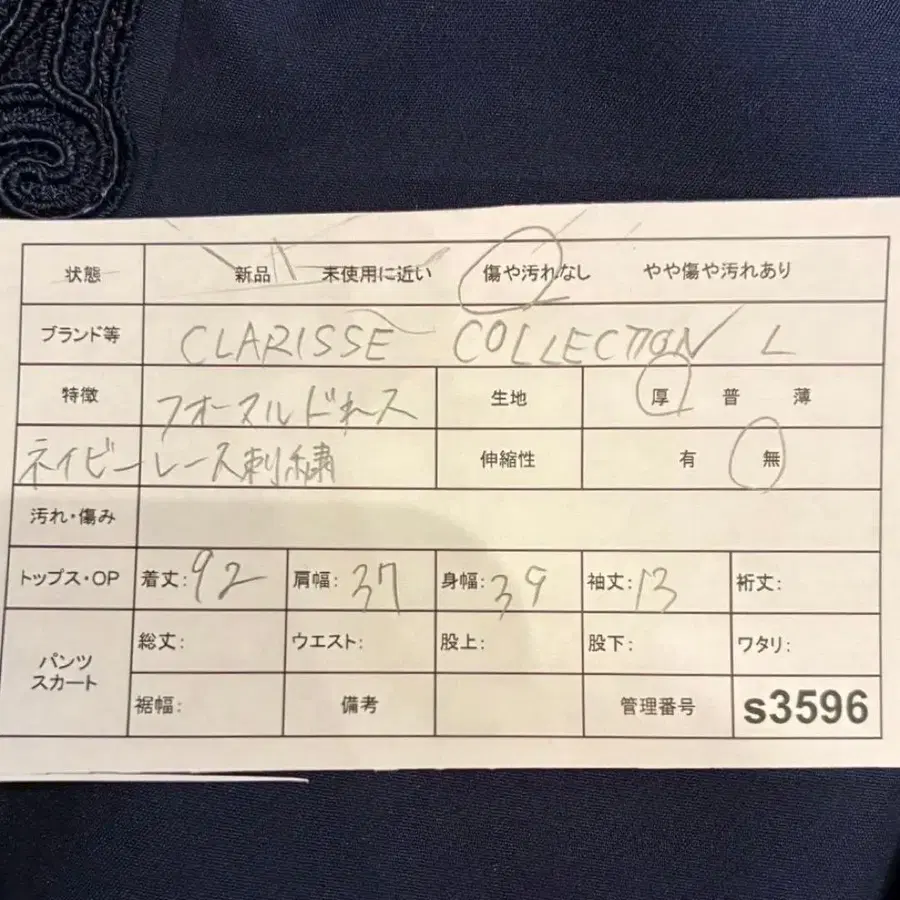 状態 新品 未使用に近い 傷や汚れなし やや傷や汚れあり
ブランド等 CLARISSE COLLECTION L
特徴 フォーマルドレス 生地 厚 普 薄
ネイビーレース刺繍 伸縮性 有 無
汚れ・傷み
トップス・OP 着丈:92 肩幅:37 身幅:39 袖丈:13 裄丈:
パンツ スカート 総丈: ウエスト: 股上: 股下: ワタリ:
裾幅: 備考 管理番号 s3596